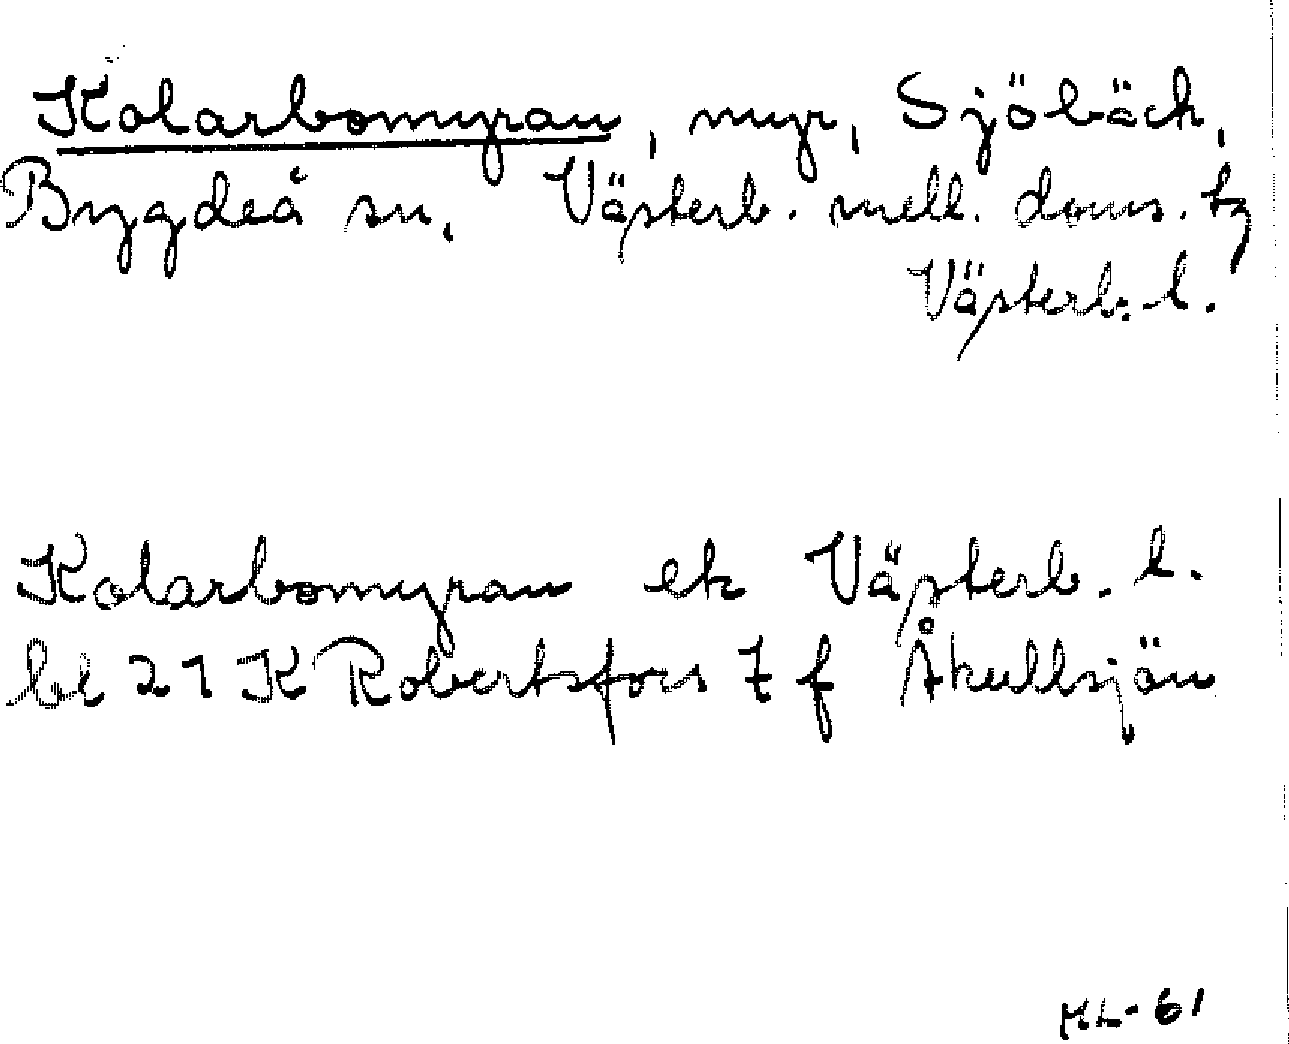 Kolarbomyran, myr, Sjöbäck,
Bygdeå sn. Västerb. mell. doms. tg
Västerb. l.
Kolarbomyran ek Västerb. l.
bl 21 K Robertsfors 7 f Åkullsjön
ML-61